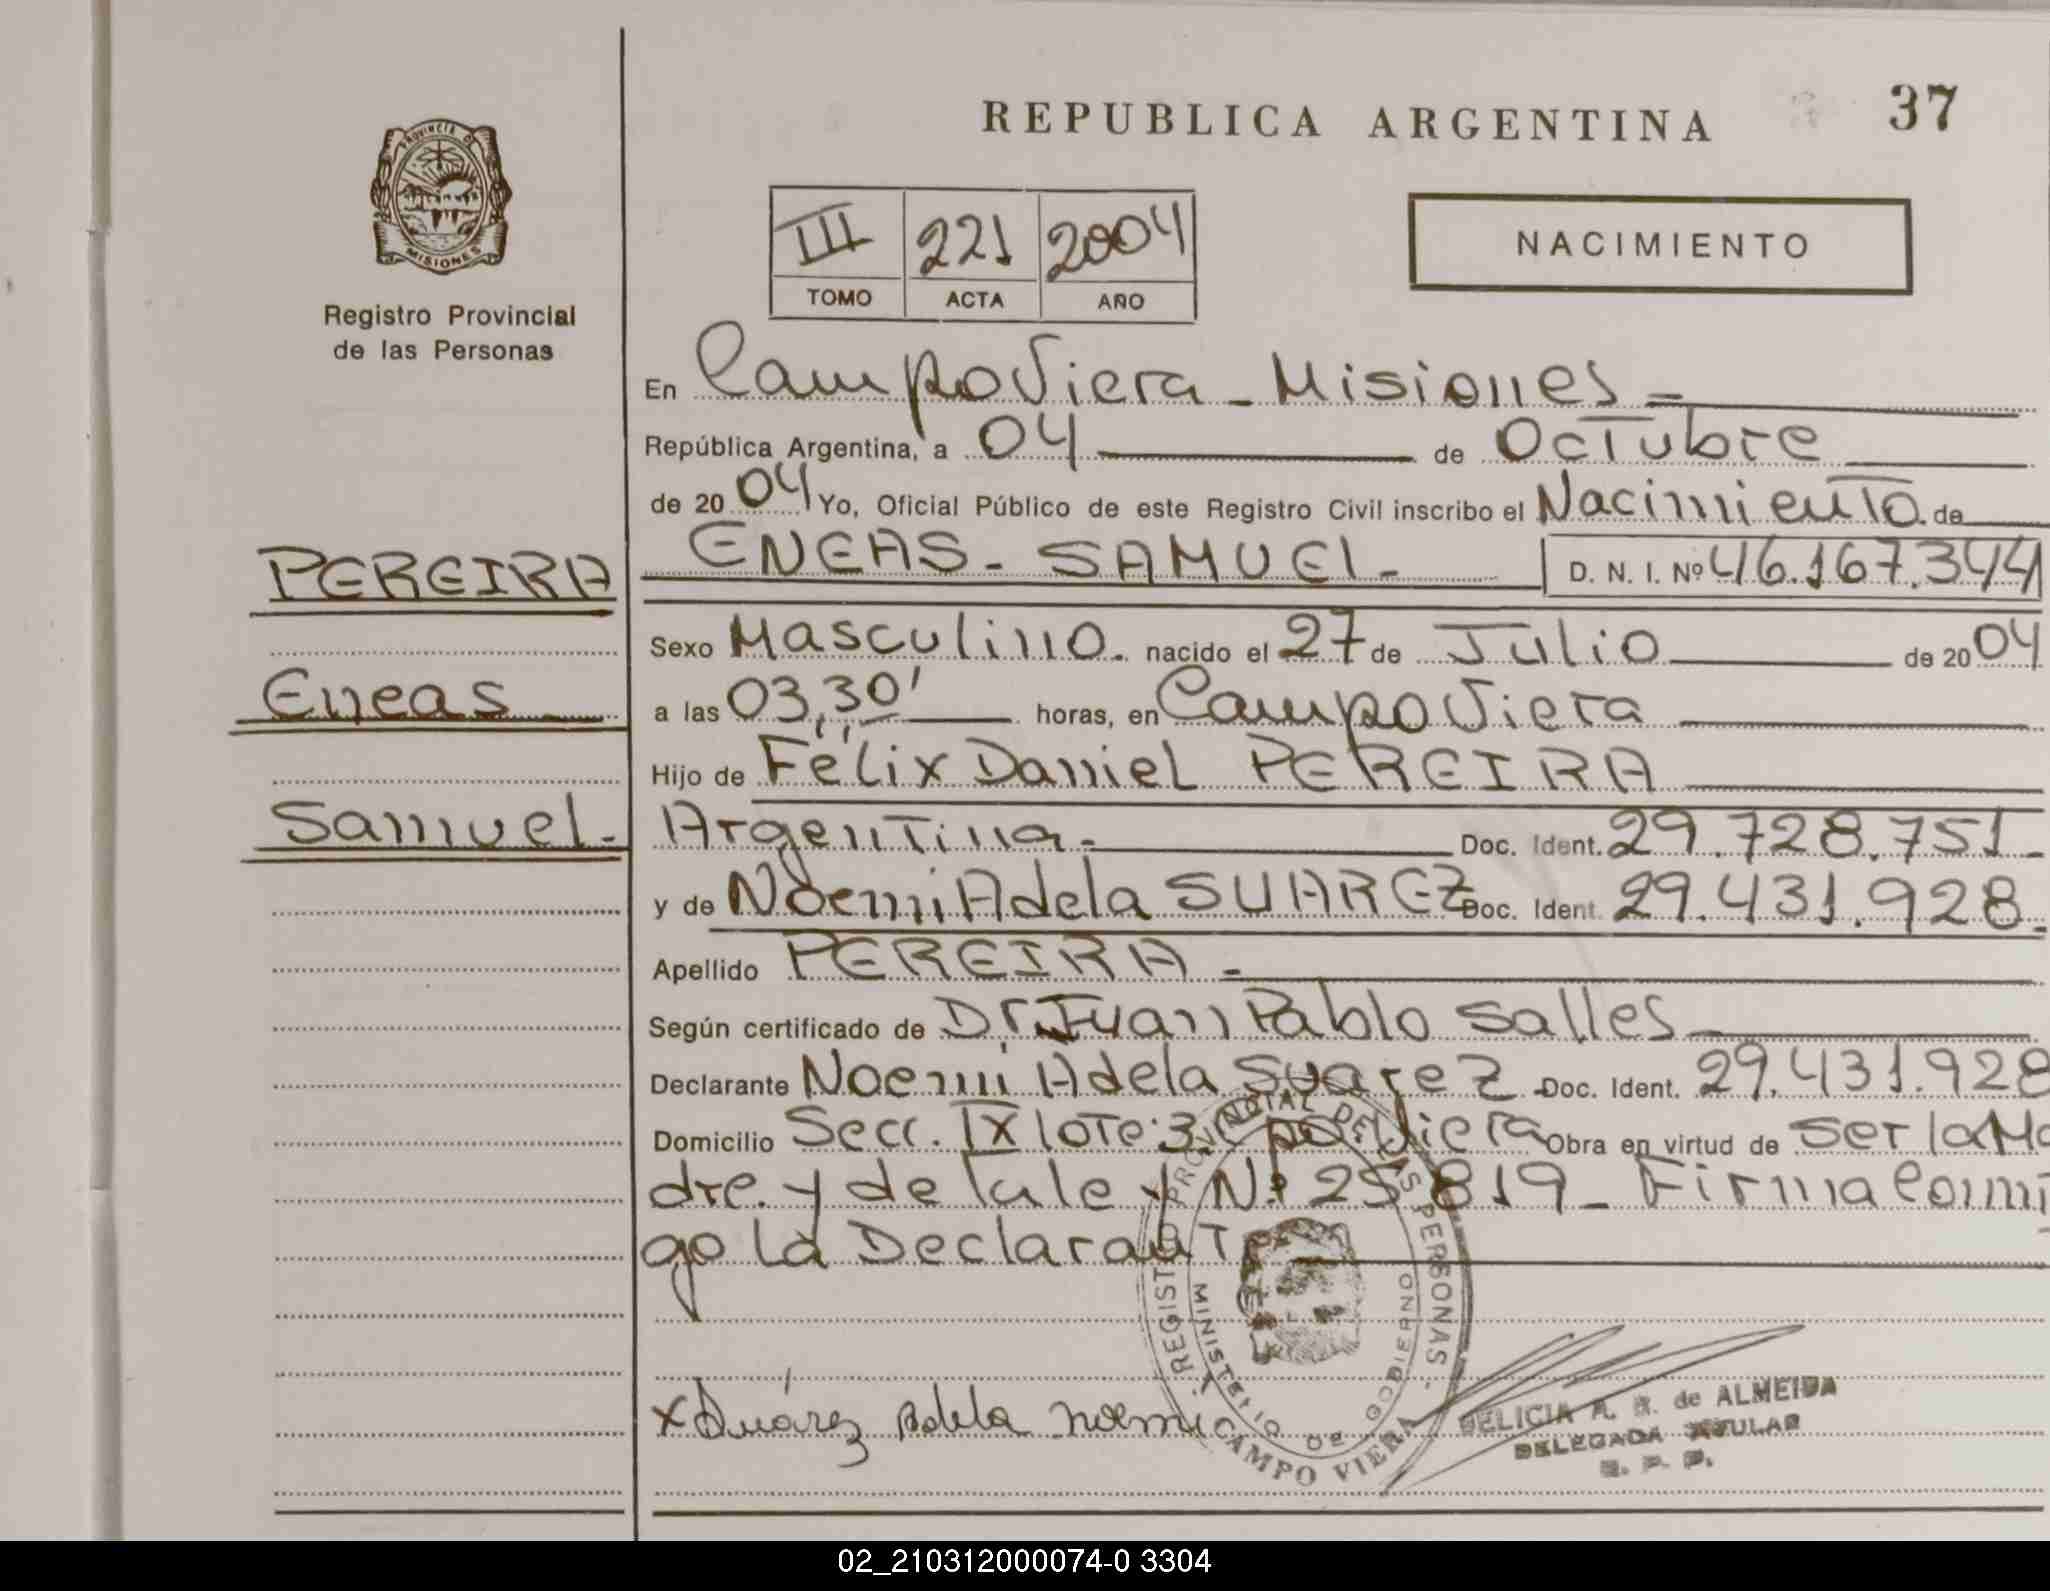 REPUBLICA ARGENTINA
37
PROVINCIA DE
MISIONES
Registro Provincial
de las Personas
III 221 2004
TOMO ACTA AÑO
NACIMIENTO
En Campo Viera - Misiones -
República Argentina, a 04 de Octubre
de 20 04 Yo, Oficial Público de este Registro Civil inscribo el Nacimiento de
PEREIRA
ENEAS - SAMUEL - D. N. I. Nº 46.167.344
Sexo Masculino. nacido el 27 de Julio de 20 04
Eneas
a las 03,30' horas, en Campo Viera
Hijo de Félix Daniel PEREIRA
Samuel.
Argentina. Doc. Ident. 29.728.751-
y de Noemi Adela SUAREZ Doc. Ident. 29.431.928.
Apellido PEREIRA -
Según certificado de Dr. Juan Pablo Salles
Declarante Noemi Adela Suarez Doc. Ident. 29.431.928
Domicilio Secc. IX lote: 3 Cpo Viera Obra en virtud de ser la Ma
dre. y de la ley Nº 25819 - Firma Conmi
go la Declarante
REGISTRO PROVINCIAL DE LAS PERSONAS -
MINISTERIO DE GOBIERNO
CAMPO VIERA
x Suárez Adela Noemi
DELICIA A. R. de ALMEIDA
DELEGADA TITULAR
R. P. P.
02_210312000074-0 3304